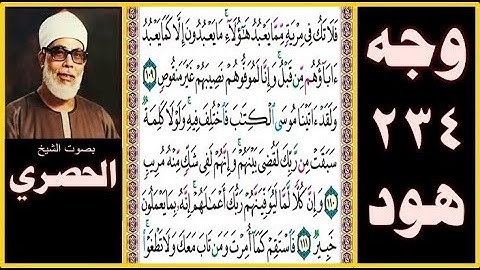 وجه
٢٣٤
هود
بصوت الشيخ
الحصري
فَلَا تَكُ فِي مِرْيَةٍ مِّمَّا يَعْبُدُ هَٰٓؤُلَآءِ ۚ مَا يَعْبُدُونَ إِلَّا كَمَا يَعْبُدُ
ءَابَآؤُهُم مِّن قَبْلُ ۚ وَإِنَّا لَمُوَفُّوهُمْ نَصِيبَهُمْ غَيْرَ مَنقُوصٍ ١٠٩
وَلَقَدْ ءَاتَيْنَا مُوسَى ٱلْكِتَٰبَ فَٱخْتُلِفَ فِيهِ ۚ وَلَوْلَا كَلِمَةٌ
سَبَقَتْ مِن رَّبِّكَ لَقُضِيَ بَيْنَهُمْ ۚ وَإِنَّهُمْ لَفِي شَكٍّ مِّنْهُ مُرِيبٍ
١١٠ وَإِنَّ كُلًّا لَّمَّا لَيُوَفِّيَنَّهُمْ رَبُّكَ أَعْمَٰلَهُمْ ۚ إِنَّهُۥ بِمَا يَعْمَلُونَ
خَبِيرٌ ١١١ فَٱسْتَقِمْ كَمَآ أُمِرْتَ وَمَن تَابَ مَعَكَ وَلَا تَطْغَوْا۟ ۚ